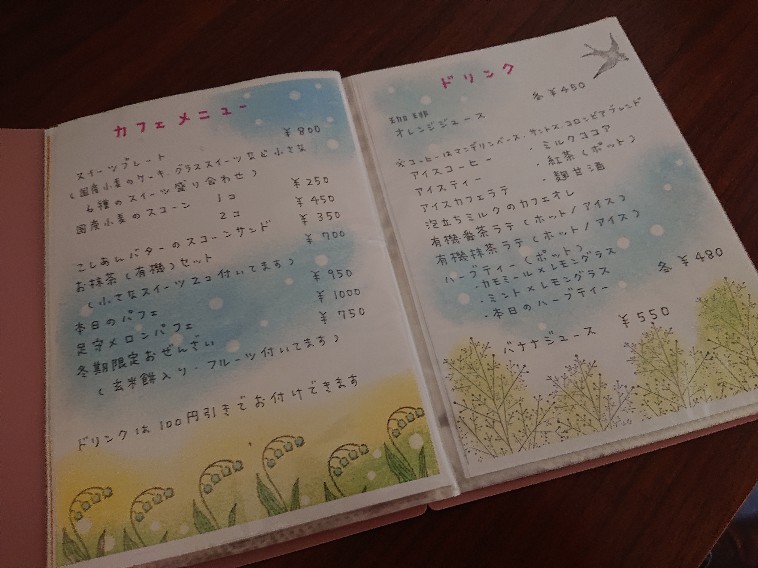 カフェメニュー
スイーツプレート ¥800
(国産小麦のケーキ、グラススイーツなど小さな
6種のスイーツ盛り合わせ)
国産小麦のスコーン 1コ ¥250
2コ ¥450
こしあんバターのスコーンサンド ¥350
お抹茶(有機)セット ¥700
(小さなスイーツ2コ付いてます)
本日のパフェ ¥950
足守メロンパフェ ¥1000
冬期限定おぜんざい ¥750
(玄米餅入り・フルーツ付いてます)
ドリンクは100円引きでお付けできます
ドリンク
珈琲 各¥450
オレンジジュース
※コーヒーはマンデリンベース・サントス×コロンビアブレンド
アイスコーヒー ・ミルクココア
アイスティー ・紅茶(ポット)
アイスカフェラテ ・麹甘酒
泡立ちミルクのカフェオレ
有機番茶ラテ(ホット/アイス)
有機抹茶ラテ(ホット/アイス)
ハーブティー(ポット) 各¥480
・カモミール×レモングラス
・ミント×レモングラス
・本日のハーブティー
バナナジュース ¥550